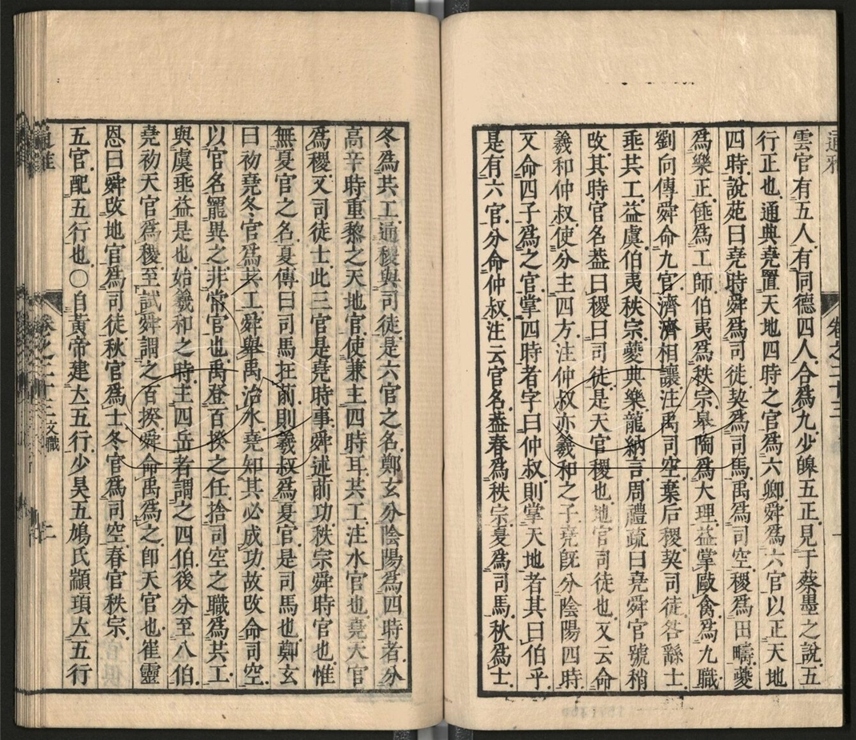 雲官有五人有同德四人合爲九少皞五正見于蔡墨之說五
行正也通典堯置天地四時之官爲六卿舜爲六官以正天地
四時說苑曰堯時舜爲司徒契爲司馬禹爲司空稷爲田疇夔
爲樂正倕爲工師伯夷爲秩宗皋陶爲大理益掌敺禽爲九職
劉向傳舜命九官濟濟相讓注禹司空棄后稷契司徒咎繇士
垂共工益虞伯夷秩宗夔典樂龍納言周禮疏曰堯舜官號稍
改其時官名蓋曰稷曰司徒是天官稷也地官司徒也又云命
羲和仲叔使分主四方注仲叔亦羲和之子堯旣分陰陽四時
又命四子爲之官掌四時者字曰仲叔則掌天地者其曰伯乎
是有六官分命仲叔注云官名蓋春爲秩宗夏爲司馬秋爲士
冬爲共工通稷與司徒是六官之名鄭玄分陰陽爲四時者分
高辛時重黎之天地官使兼主四時耳共工注水官也堯天官
爲稷又司徒士此三官是堯時事舜述前功秩宗舜時官也惟
無夏官之名夏傳曰司馬在前則羲叔爲夏官是司馬也鄭玄
曰初堯冬官爲共工舜舉禹治水堯知其必成功故改命司空
以官名寵異之非常官也禹登百揆之任捨司空之職爲共工
與虞垂益是也始羲和之時主四岳者謂之四伯後分至八伯
堯初天官爲稷至試舜謂之百揆舜命禹爲之卽天官也崔靈
恩曰舜改地官爲司徒秋官爲士冬官爲司空春官秩宗
五官配五行也○自黃帝建大五行少昊五鳩氏顓頊大五行
通雅
卷之二十三
文職
二